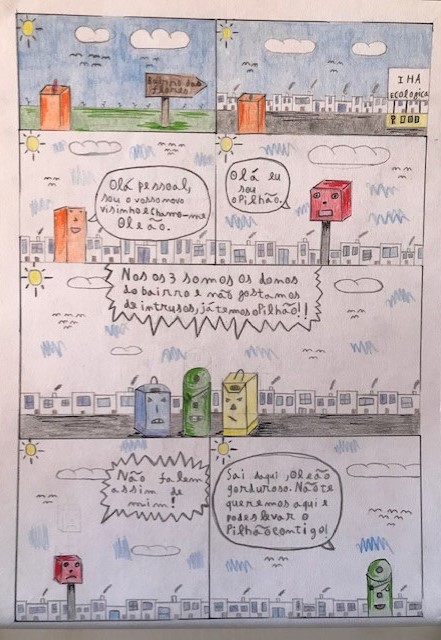 Bairro das
flores
IHA
ECOLOGICA
Olá pessoal,
sou o vosso novo
visinho e chamo-me
Oleão.
Olá eu
sou
o Pilhão.
Nos os 3 somos os donos
do bairro e não gostamos
de intrusos, já temos o Pilhão!!
Não falem
assim de
mim!
Sai daqui, Oleão
gorduroso. Não te
queremos aqui e
podes levar o
Pilhão contigo!